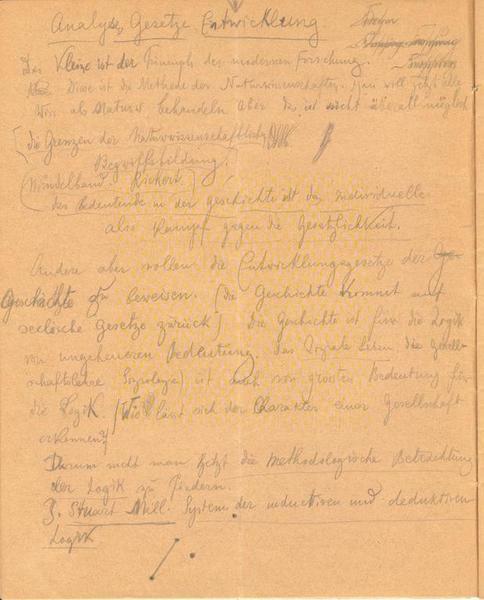 Analyse, Gesetze Entwicklung.
Das Kleine ist der Triumph der modernen Forschung.
Diese ist die Methode der Naturwissenschaften. Man will jetzt alle
Wiss als Naturw behandeln aber da ist nicht überall möglich
[die Grenzen der Naturwissenschaftlichen
Begriffsbildung.
(Windelband. Rickert.)
das Bedeutende in der Geschichte ist das individuelle
also Kampf gegen die Gesetzlichkeit.
Andere aber wollen die Entwicklungsgesetze der
Geschichte zu beweisen. (die Geschichte kommt auf
seelische Gesetze zurück) Die Geschichte ist für die Logik
von ungeheuren Bedeutung. Das Soziale Leben (die Gesell-
schaftslehre Soziologie) ist auch von grosten Bedeutung für
die Logik. (Wie lässt sich der Charakter einer Gesellschaft
erkennen?)
Darum sucht man jetzt die methodologische Betrachtung
der Logik zu fördern.
J. Stuart Mill. System der inductiven und deduktiven
Logik